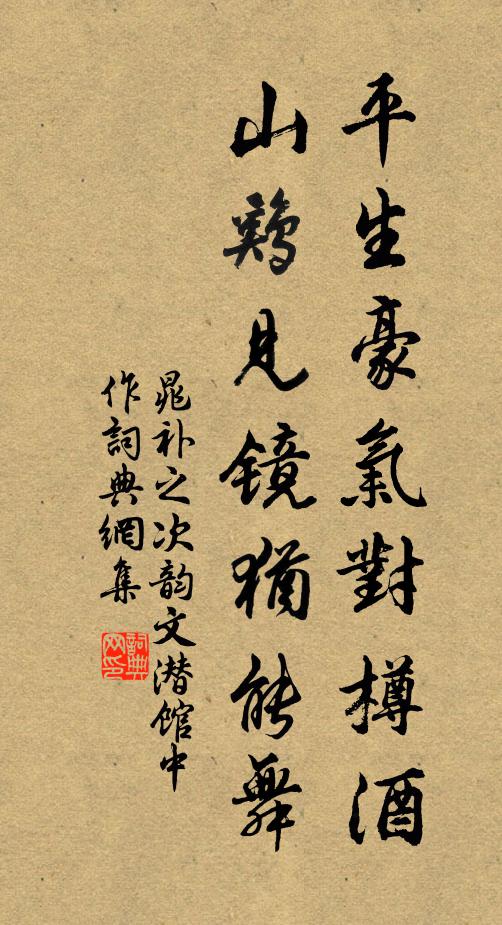 平生豪氣對樽酒
山鷄見镜猶能舞
晁补之次韵文潜館中
作詞典網集
詞典网印